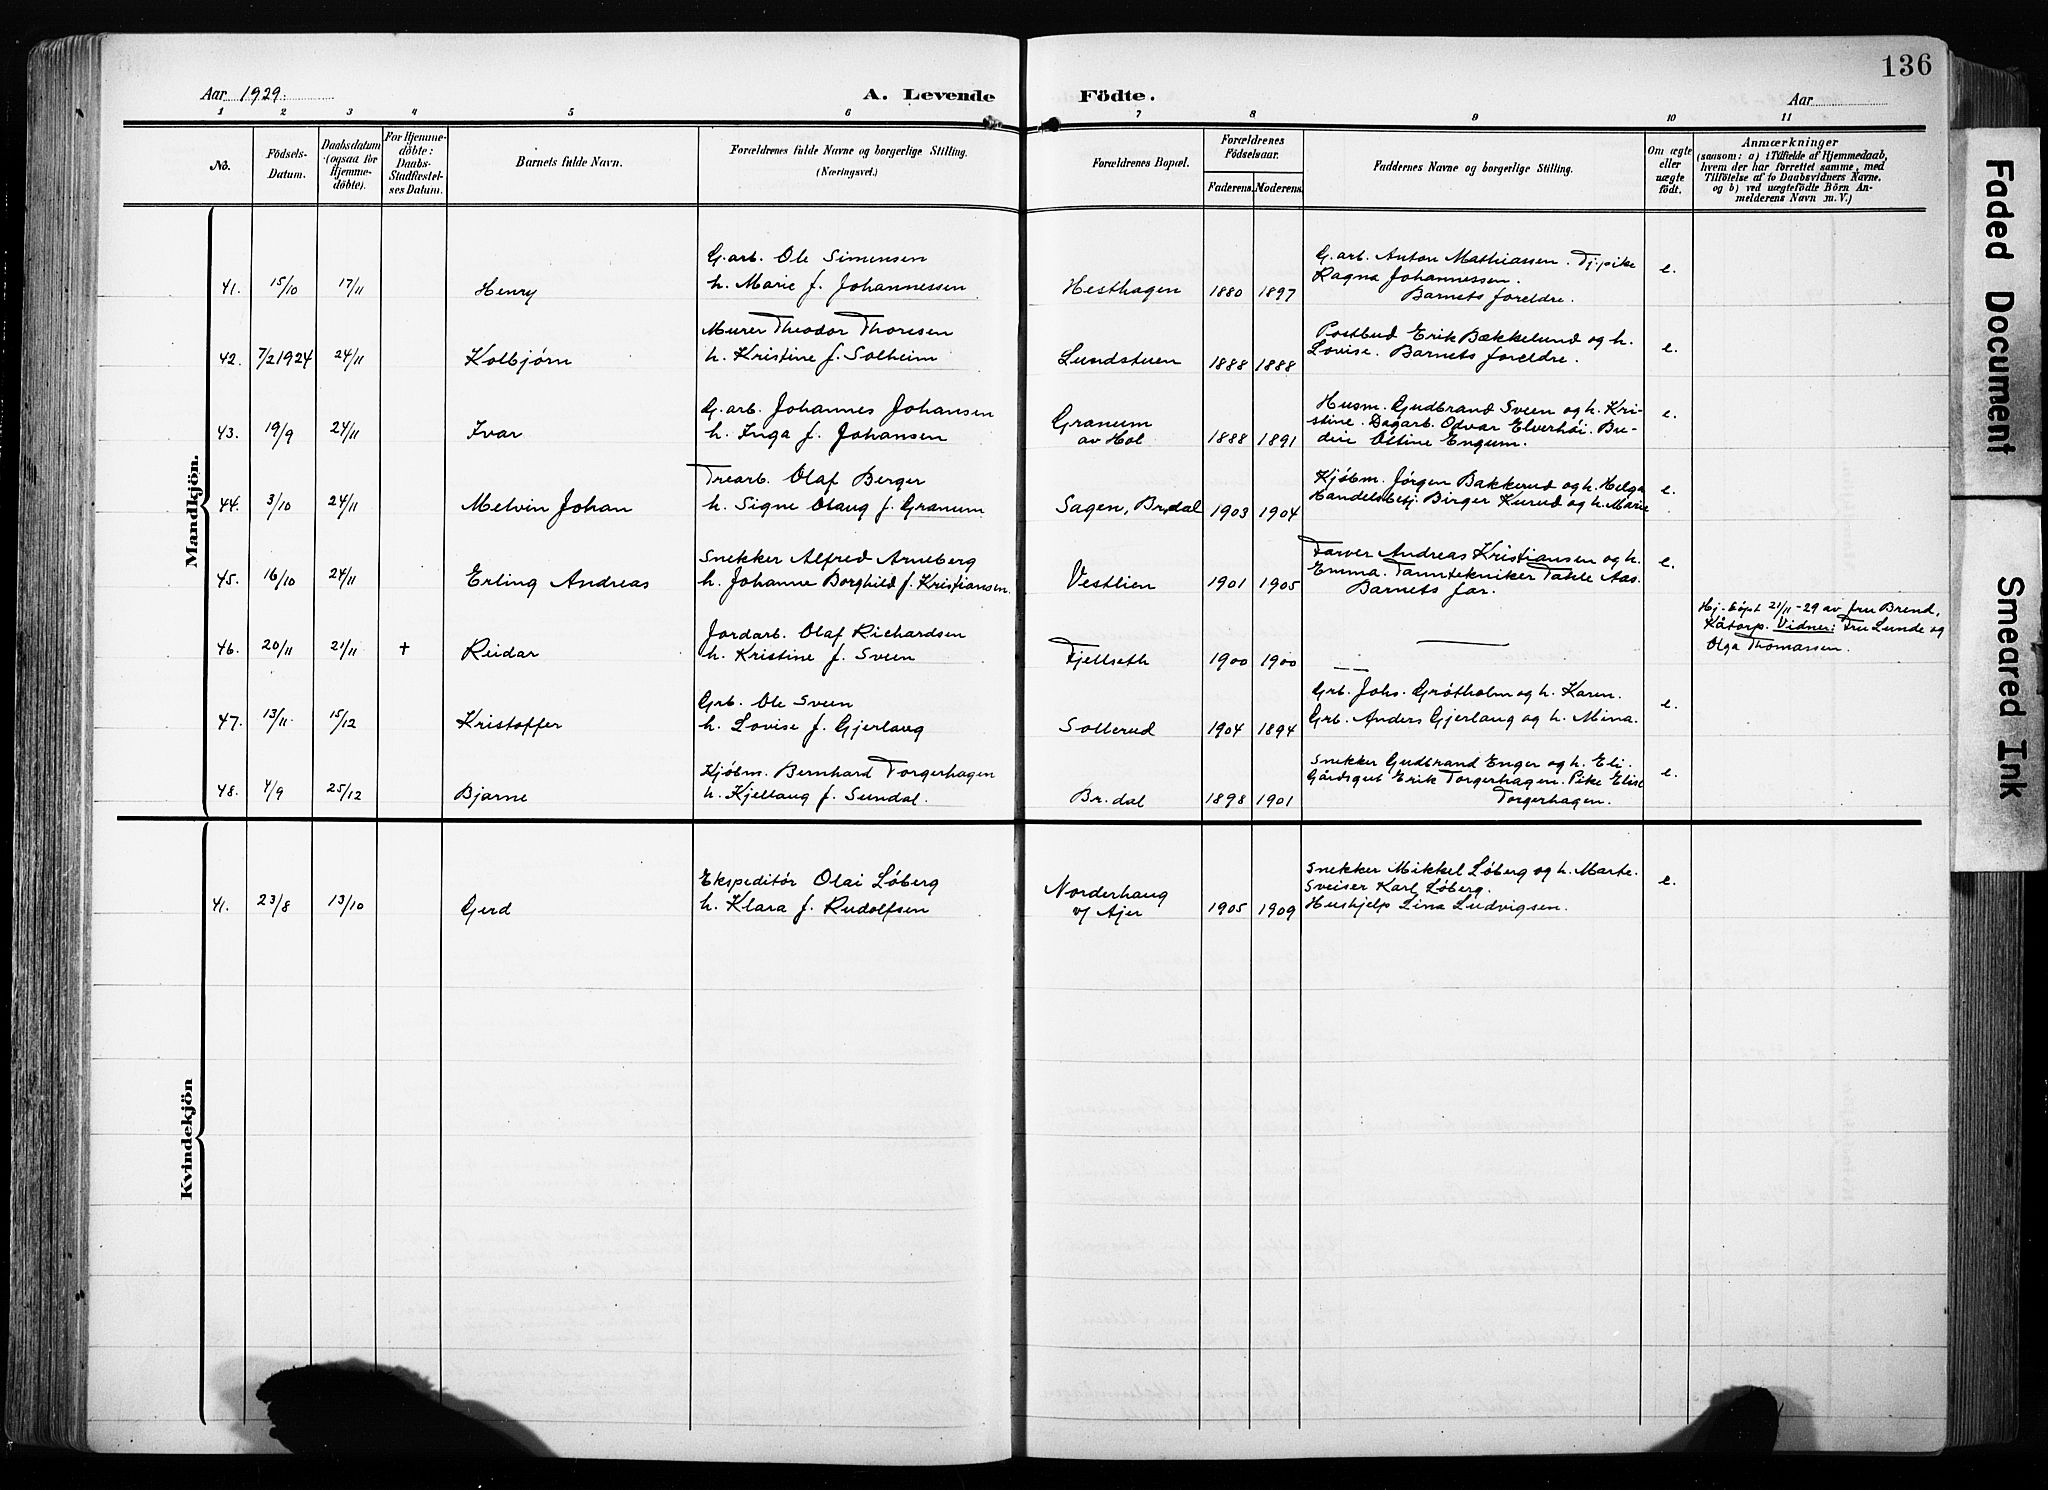 136
Aar 1929.
A. Levende Födte.
Aar
1 2 3 4 5 6 7 8 9 10 11
No.
Födsels-
Datum.
Daabsdatum
(ogsaa for
Hjemme-
døbte).
For Hjemme-
døbte:
Daabs-
Stadfæstel-
ses Datum.
Barnets fulde Navn.
Forældrenes fulde Navne og borgerlige Stilling.
(Næringsvei.)
Forældrenes Bopæl.
Forældrenes
Födselsaar.
Faderens. Moderens.
Faddernes Navne og borgerlige Stilling.
Om ægte
eller
uægte
født.
Anmærkninger
(saasom: a) i Tilfælde af Hjemmedaab,
hvem der har forrettet samme, med
Tilföielse af to Daabsvidners Navne.
og b) ved uægtefödte Börn An-
melderens Navn m. V.)
Mandkjön.
41. 15/10 17/11 Henry
G.arb. Ole Simensen
h. Marie f. Johannessen
Hesthagen 1880 1897
G.arb. Anton Mathiassen. Tj.pike
Ragna Johannessen.
Barnets foreldre.
e.
42. 7/2 1924 24/11 Kolbjørn
Murer Theodor Thoresen
h. Kristine f. Solheim
Lundstuen 1888 1888
Postbud Erik Bækkelund og h.
Lovise. Barnets foreldre.
e.
43. 19/9 24/11 Ivar
G.arb. Johannes Johansen
h. Inga f. Johansen
Granum
av Hol 1888 1891
Husm. Gudbrand Sveen og h. Kri-
stine. Dagarb. Odvar Elverhöi. Bu-
deie Oltine Engum.
e.
44. 3/10 24/11 Melvin Johan
Trearb. Olaf Berger
h. Signe Olaug f. Granum
Sagen, Br.dal 1903 1904
Kjøbm. Jørgen Bakkerud og h. Helga
Handelsbetj. Birger Kurud og h. Marie
e.
45. 16/10 24/11 Erling Andreas
Snekker Alfred Arneberg
h. Johanne Borghild f. Kristiansen.
Vestlien 1901 1905
Farver Andreas Kristiansen og h.
Emma. Tanntekniker Takle Aas.
Barnets far.
e.
46. 20/11 21/11 + Reidar
Jordarb. Olaf Richardsen
h. Kristine f. Sveen
Fjellseth 1900 1900
Hj.døpt 21/11-29 av fru Brend,
Kåtorp. Vidner: Fru Lunde og
Olga Thomassen.
47. 13/11 15/12 Kristoffer
Grb. Ole Sveen
h. Lovise f. Gjerlaug
Sollerud 1904 1894
Grb. Johs. Grøtholm og h. Karen.
Grb. Anders Gjerlaug og h. Mina.
e.
48. 4/9 25/12 Bjarne
Kjøbm. Bernhard Torgerhagen
h. Kjellaug f. Sundal.
Br.dal 1898 1901
Snekker Gudbrand Enger og h. Eli.
Gårdsgut Erik Torgerhagen. Pike Elise
Torgerhagen.
e.
Kvindekjön
41. 23/8 13/10 Gerd
Ekspeditör Olai Löberg
h. Klara f. Rudolfsen
Norderhaug
v/ Ajer 1905 1909
Snekker Mikkel Löberg og h. Marte.
Sveiser Karl Löberg.
Hushjelp Lina Ludvigsen.
e.
Faded Document
Smeared Ink